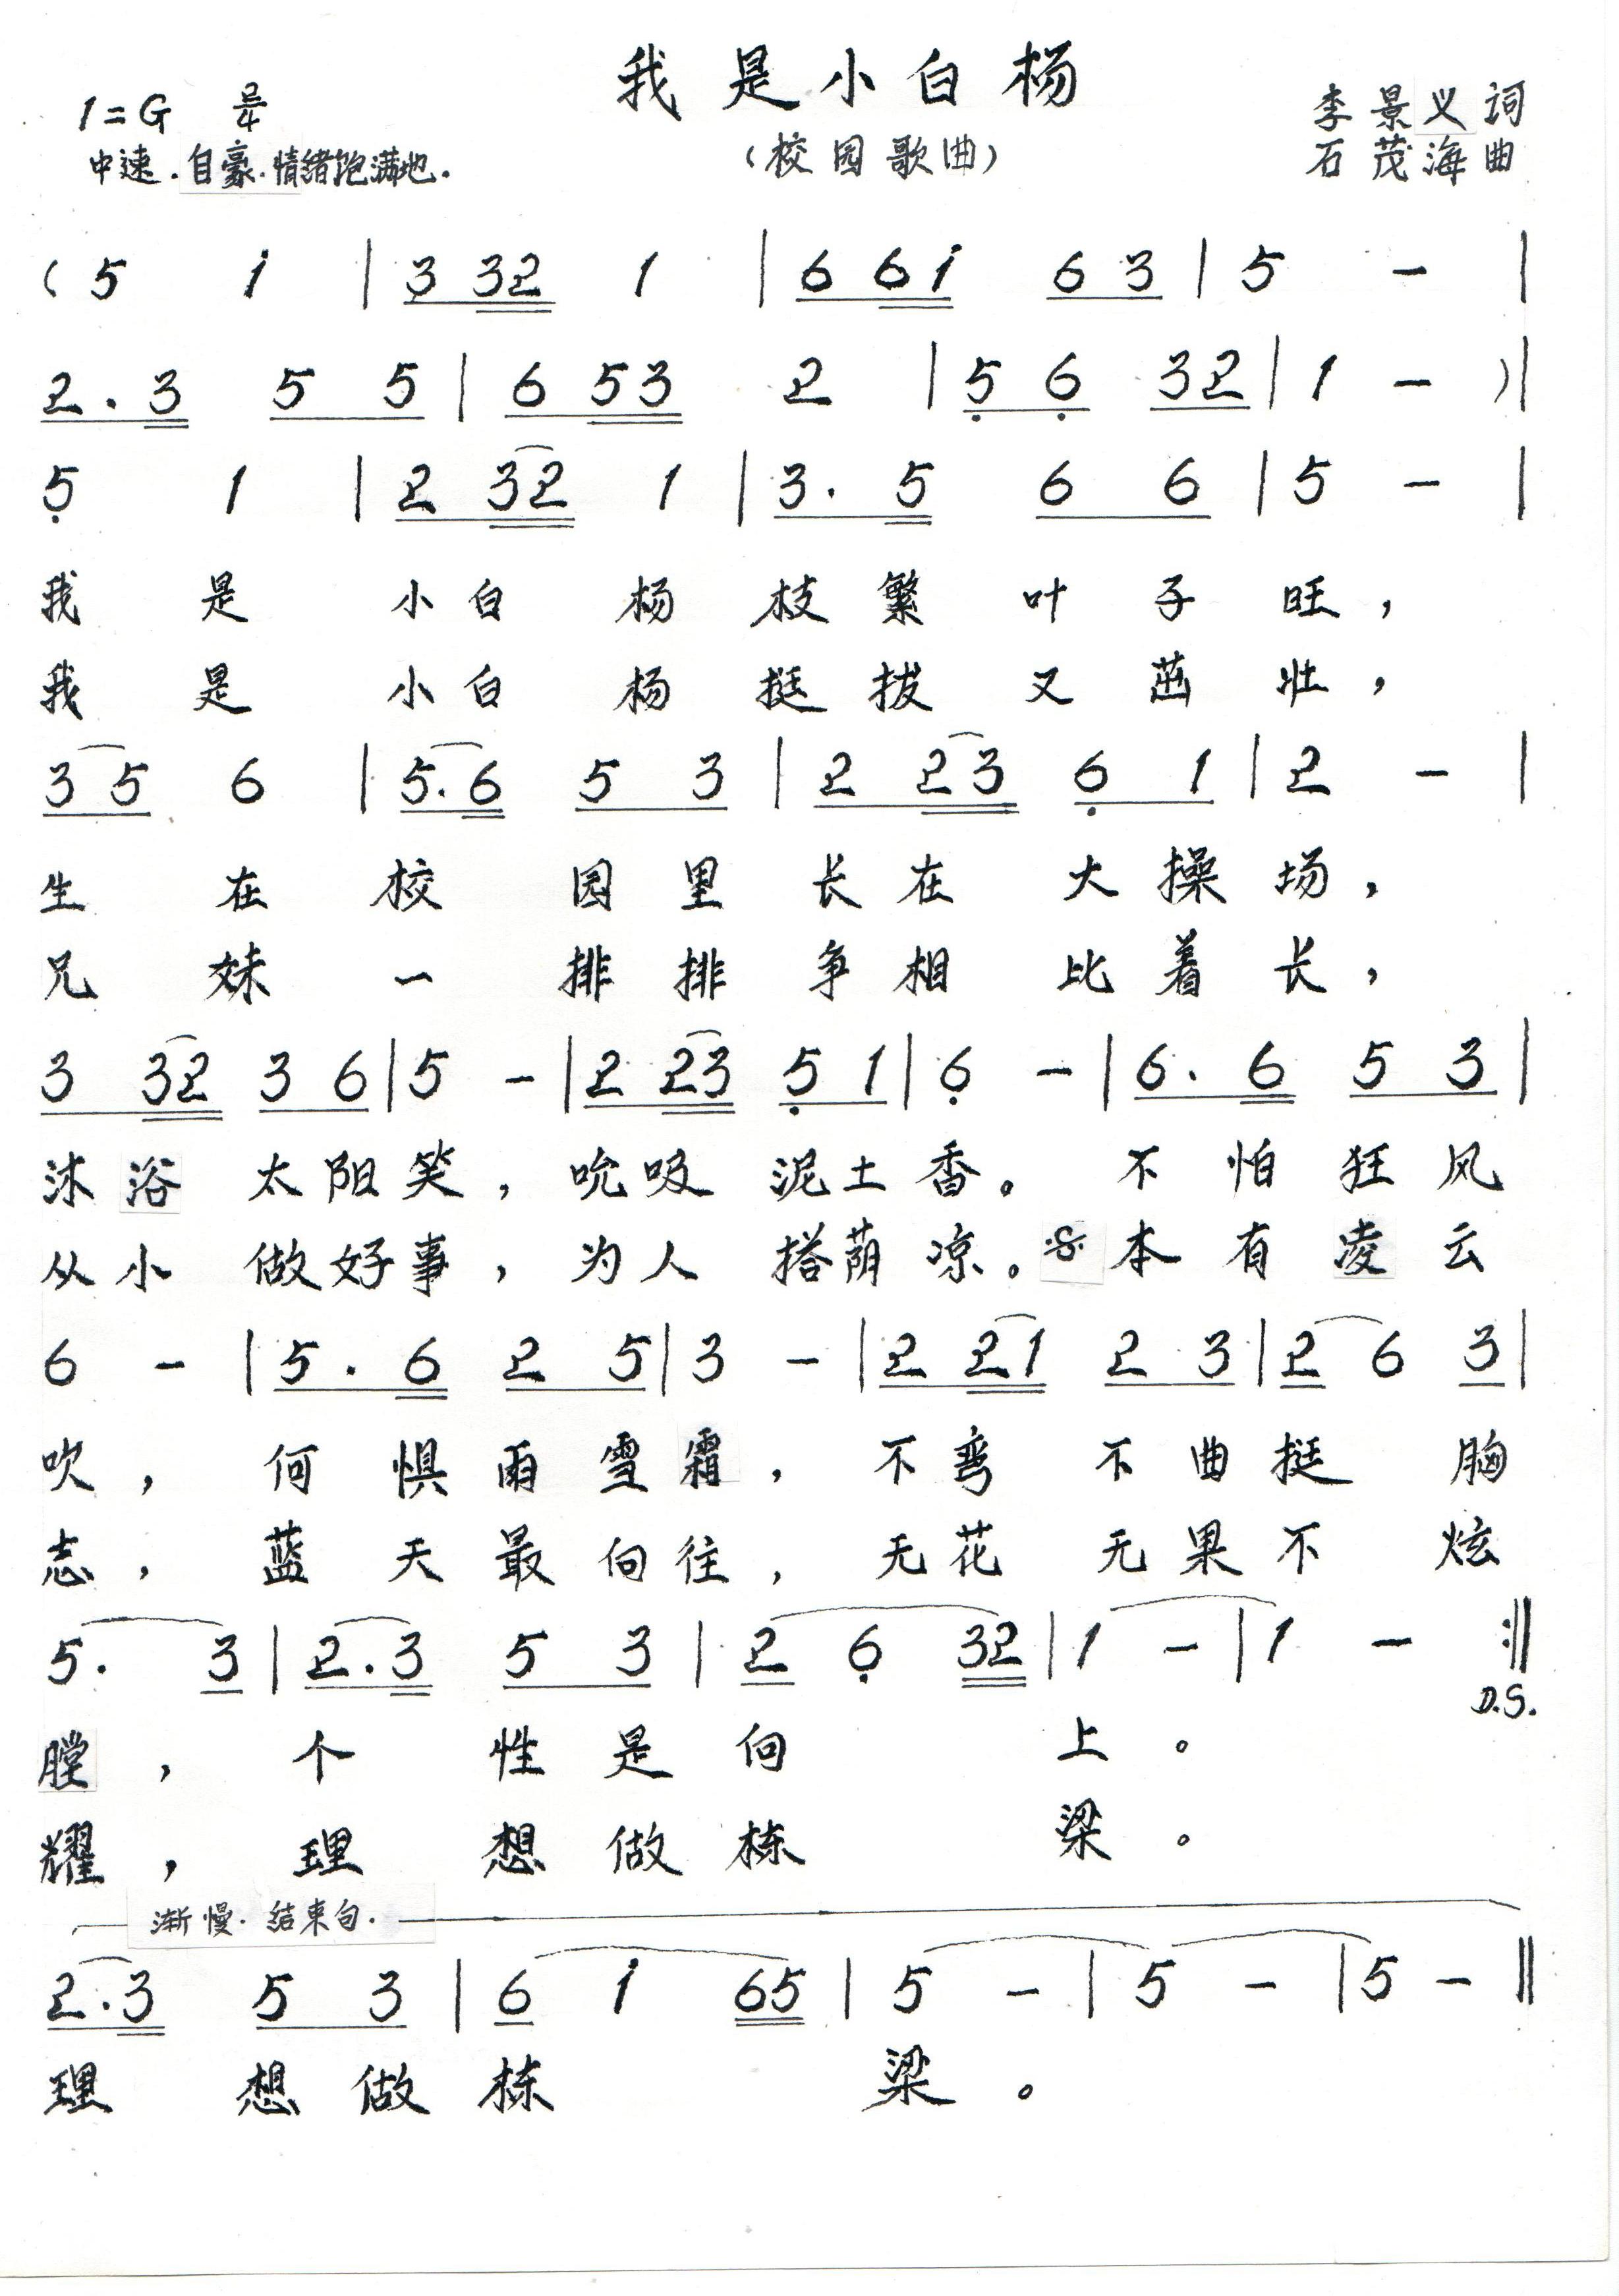 我是小白杨
1=G 2/4
李景义词
中速.自豪.情绪饱满地.
(校园歌曲)
石茂海曲
(5 i | 3 32 1 | 6 6i 6 3 | 5 - |
2.3 5 5 | 6 53 2 | 5̣ 6̣ 32 | 1 - )|
5̣ 1 | 2 32 1 | 3. 5 6 6 | 5 - |
我是小白杨枝繁叶子旺，
我是小白杨挺拔又茁壮，
3 5 6 | 5.6 5 3 | 2 23 6̣ 1 | 2 - |
生在校园里长在大操场，
兄妹一排排争相比着长，
3 32 3 6 | 5 - | 2 23 5̣ 1 | 6̣ - | 6. 6 5 3 |
沐浴太阳笑，吮吸泥土香。不怕狂风
从小做好事，为人搭荫凉。𝄋本有凌云
6 - | 5. 6 2 5 | 3 - | 2 21 2 3 | 2 6 3 |
吹，何惧雨雪霜，不弯不曲挺胸
志，蓝天最向往，无花无果不炫
5. 3 | 2.3 5 3 | 2 6̣ 32 | 1 - | 1 - :‖
D.S.
膛，个性是向上。
耀，理想做栋梁。
渐慢.结束句.
2.3 5 3 | 6 i 65 | 5 - | 5 - | 5 - ‖
理想做栋梁。